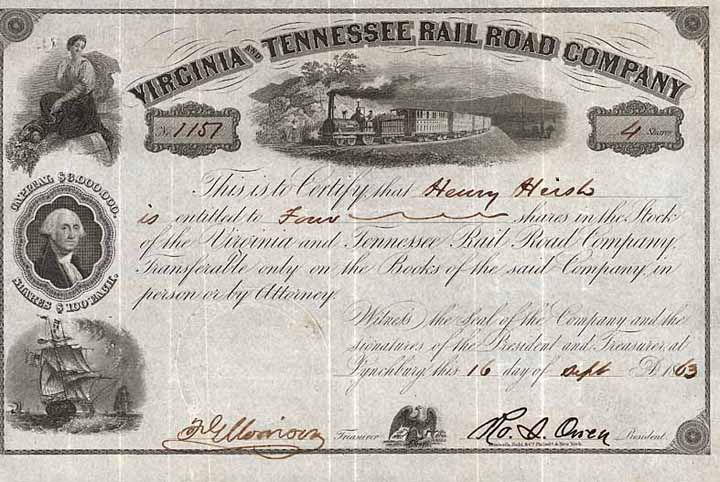 VIRGINIA AND TENNESSEE RAIL ROAD COMPANY
No. 1151
4 Shares
This is to Certify, that Henry Hersh
is entitled to Four shares in the Stock
of the Virginia and Tennessee Rail Road Company,
Transferable only on the Books of the said Company, in
person or by Attorney.
CAPITAL $3,000,000.
SHARES $100 EACH.
Witness, the Seal of the Company and the
signatures of the President and Treasurer, at
Lynchburg, this 16 day of Sept AD 1863
Treasurer
Ro. L. Owen President.